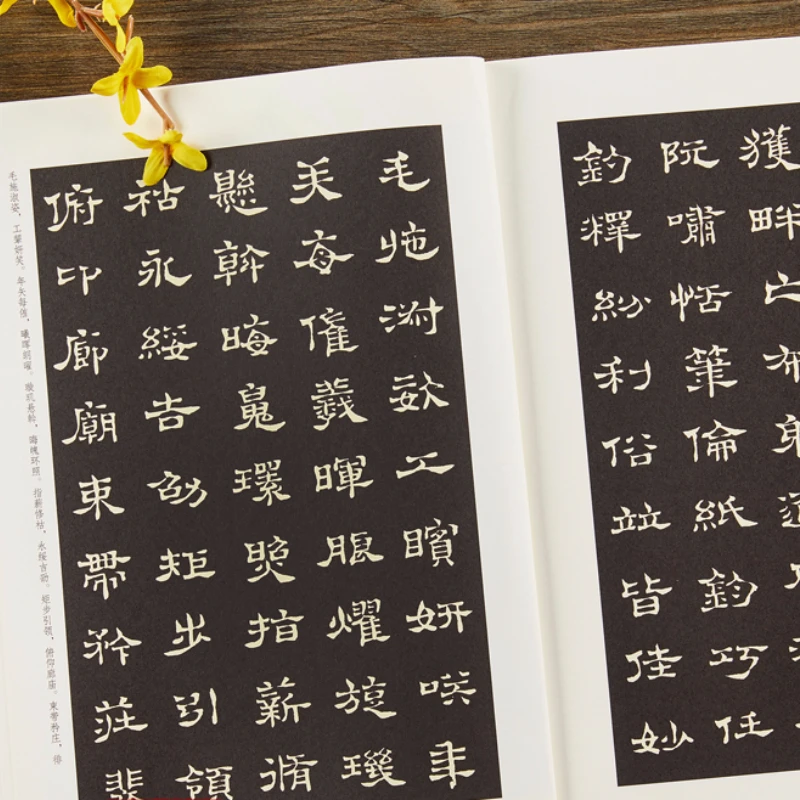 獲畔亡布射遼
阮嘯恬筆倫紙鈞巧任
釣釋紛利俗竝皆佳妙
毛施淑姿工矉妍咲年
矢每催羲暉朖曜旋璣
懸斡晦魄環照指薪脩
祜永綏吉劭矩步引領
俯卬廊廟束帶矜莊裴
毛施淑姿，工颦妍笑。年矢每催，曦晖朗曜。璇玑悬斡，晦魄环照。指薪修祜，永绥吉劭。矩步引领，俯仰廊庙。束带矜庄，徘